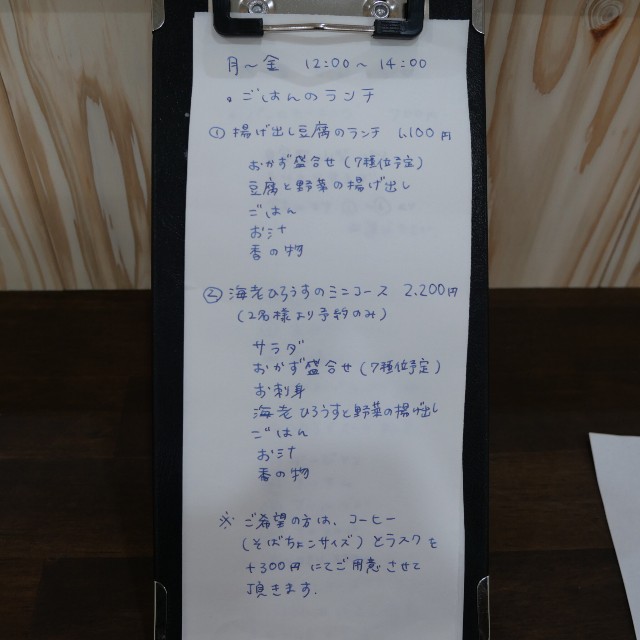 月〜金 12:00〜14:00
。ごはんのランチ
① 揚げ出し豆腐のランチ 1,100円
おかず盛合せ(7種位予定)
豆腐と野菜の揚げ出し
ごはん
お汁
香の物
② 海老ひろうすのミニコース 2,200円
(2名様より予約のみ)
サラダ
おかず盛合せ(7種位予定)
お刺身
海老ひろうすと野菜の揚げ出し
ごはん
お汁
香の物
※ ご希望の方は、コーヒー
(そばちょこサイズ)とラスクを
+300円にてご用意させて
頂きます.